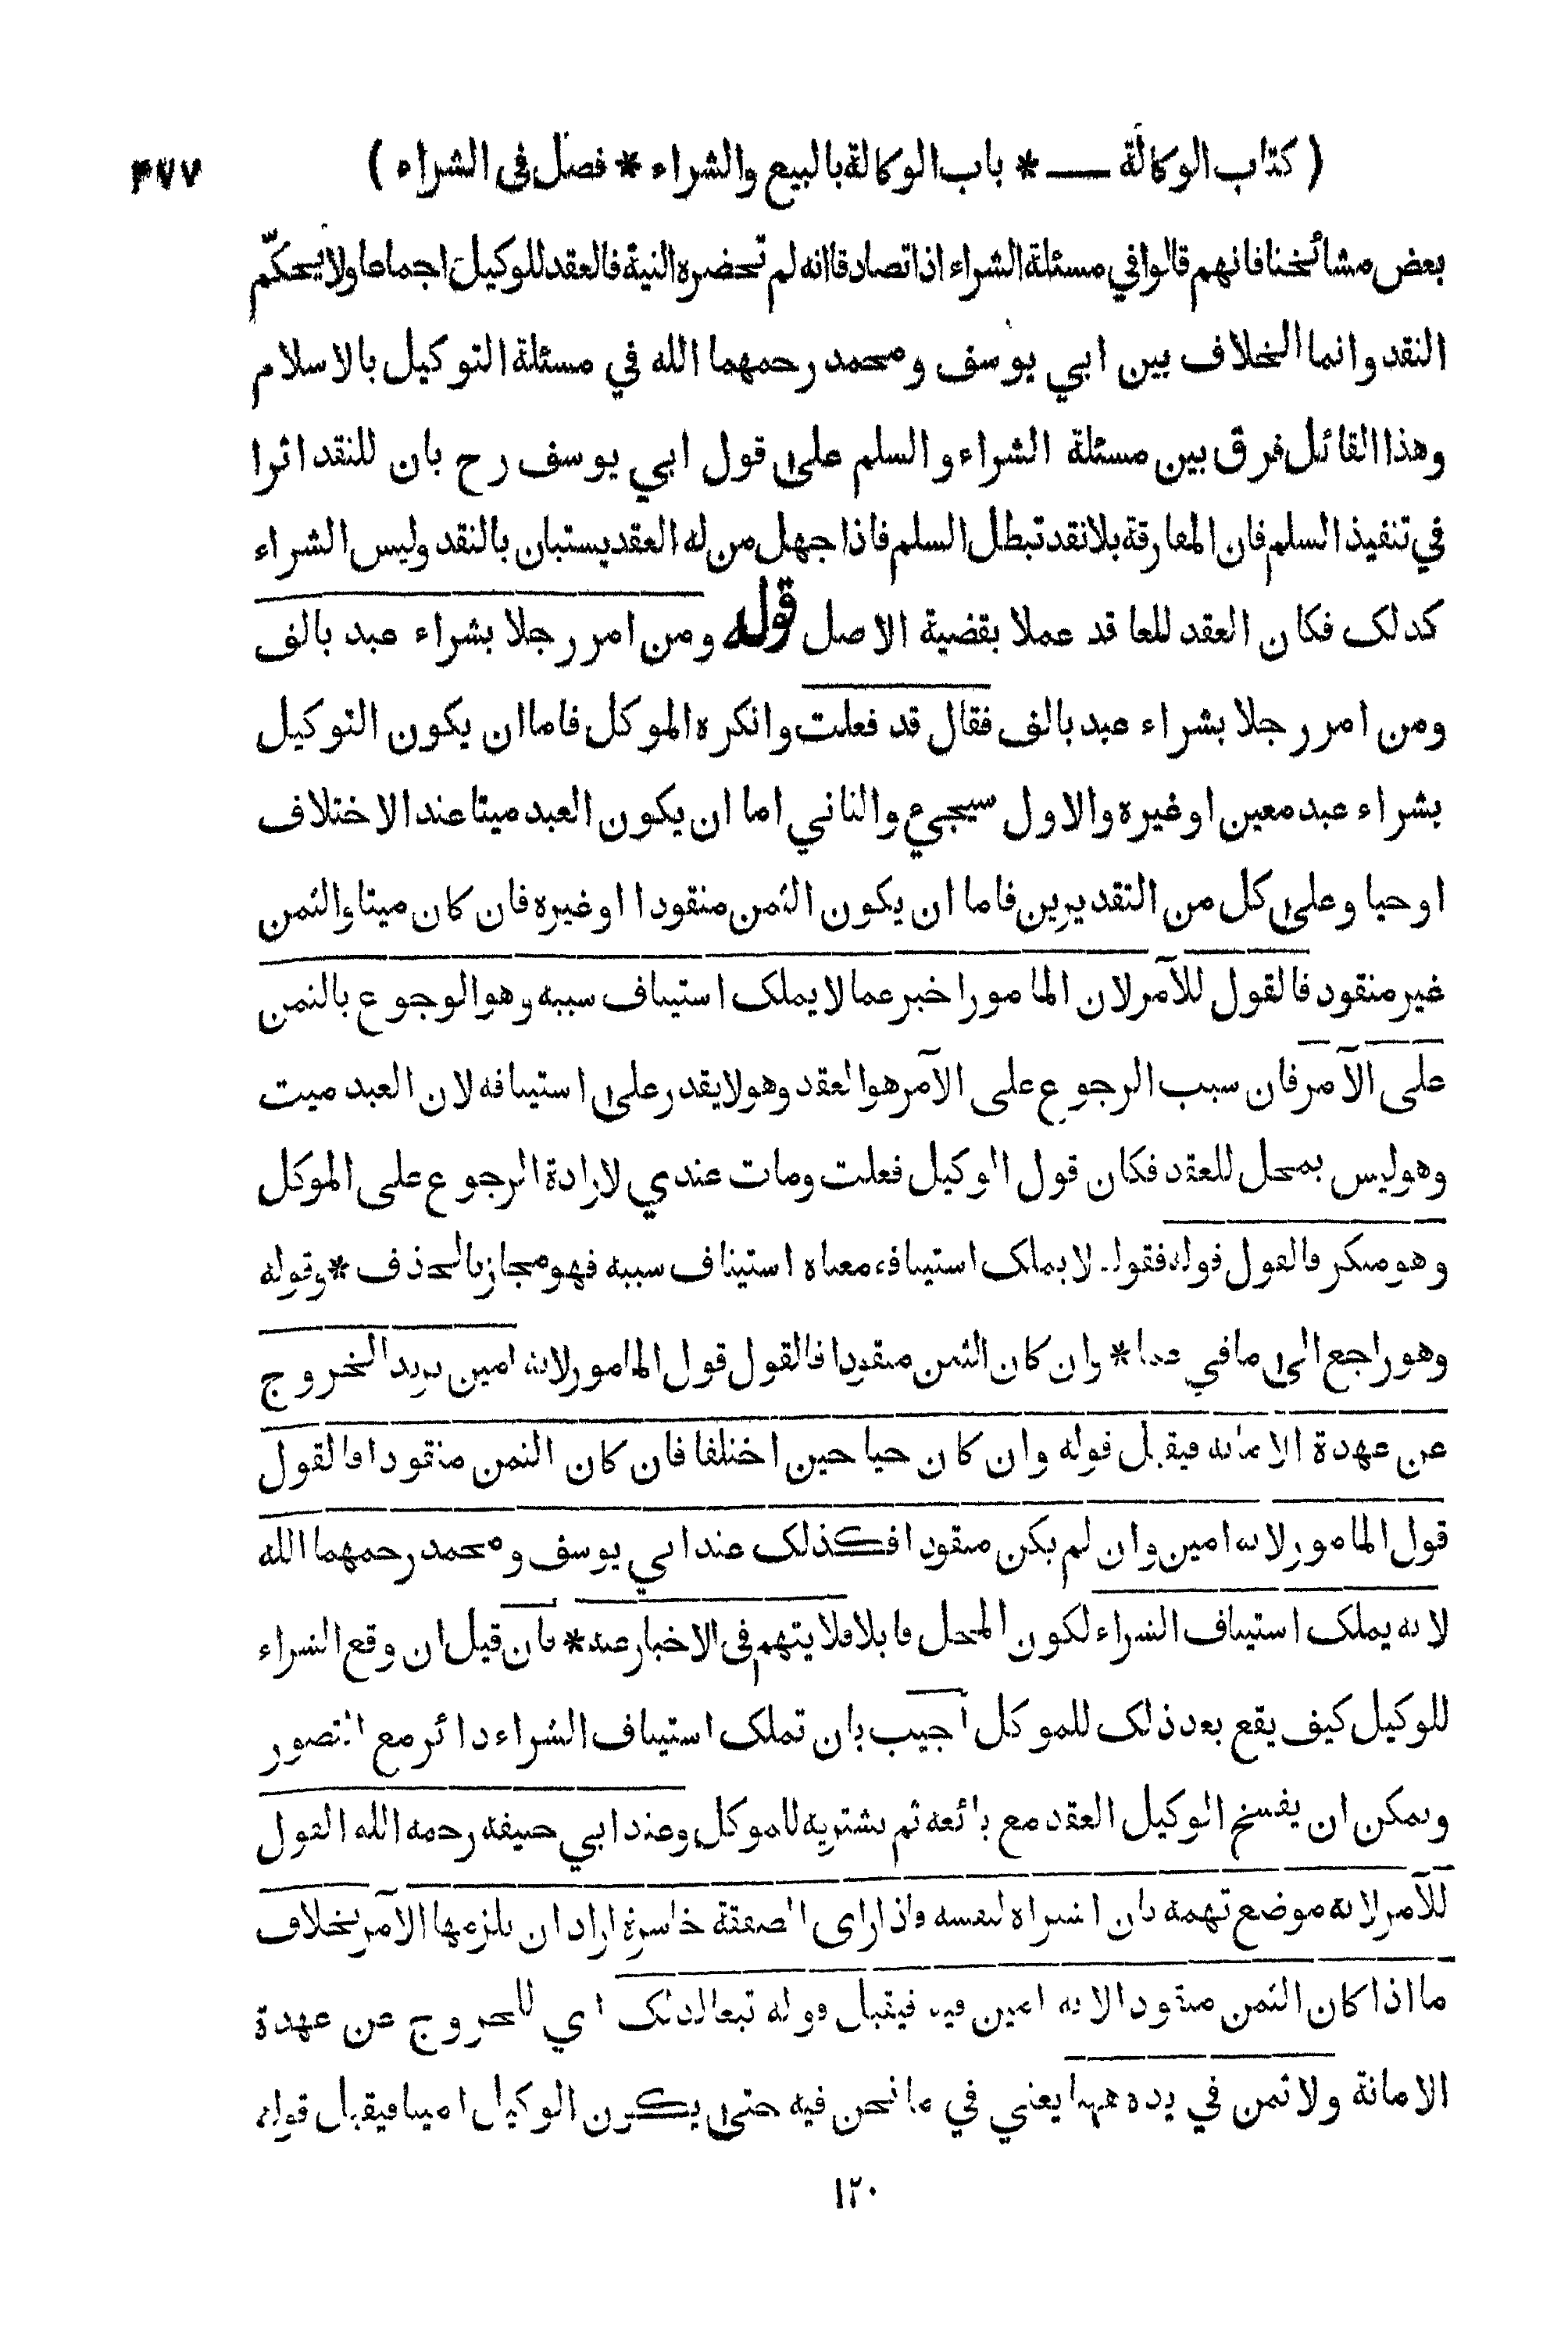 ( كتاب الوكالة — * باب الوكالة بالبيع والشراء * فصل في الشراء ) ۴۷۷
بعض مشائخنا فانهم قالوا في مسئلة الشراء اذا تصادقا انه لم تحضره النية فالعقد للوكيل اجماعا ولا يحكّم
النقد وانما الخلاف بين ابي يوسف ومحمد رحمهما الله في مسئلة التوكيل بالاسلام
وهذا القائل فرق بين مسئلة الشراء والسلم على قول ابي يوسف رح بان للنقد اثرا
في تنفيذ السلم فان المفارقة بلا نقد تبطل السلم فاذا جهل من له العقد يستبان بالنقد وليس الشراء
كذلك فكان العقد للعاقد عملا بقضية الاصل قوله ومن امر رجلا بشراء عبد بالف
ومن امر رجلا بشراء عبد بالف فقال قد فعلت وانكره الموكل فاما ان يكون التوكيل
بشراء عبد معين او غيره والاول سيجيء والثاني اما ان يكون العبد ميتا عند الاختلاف
او حيا وعلى كل من التقديرين فاما ان يكون الثمن منقودا او غيره فان كان ميتا والثمن
غير منقود فالقول للآمر لان المامور اخبر عما لا يملك استيناف سببه وهو الرجوع بالثمن
على الآمر فان سبب الرجوع على الآمر هو العقد وهو لا يقدر على استينافه لان العبد ميت
وهو ليس بمحل للعقد فكان قول الوكيل فعلت ومات عندي لارادة الرجوع على الموكل
وهو منكر فالقول قوله فقوله لا يملك استينافه معناه استيناف سببه فهو مجاز بالحذف * وقوله
وهو راجع الى ما في عما * وان كان الثمن منقودا فالقول قول المامور لانه امين يريد الخروج
عن عهدة الامانة فيقبل قوله وان كان حيا حين اختلفا فان كان الثمن منقودا فالقول
قول المامور لانه امين وان لم يكن منقودا فكذلك عند ابي يوسف ومحمد رحمهما الله
لانه يملك استيناف الشراء لكون المحل قابلا فلا يتهم في الاخبار عنه * فان قيل ان وقع الشراء
للوكيل كيف يقع بعد ذلك للموكل اجيب بان تملك استيناف الشراء دائر مع التصور
ويمكن ان يفسخ الوكيل العقد مع بائعه ثم يشتريه للموكل وعند ابي حنيفة رحمه الله القول
للآمر لانه موضع تهمة بان اشتراه لنفسه فاذا راى الصفقة خاسرة اراد ان يلزمها الآمر بخلاف
ما اذا كان الثمن منقودا لانه امين فيه فيقبل قوله تبعا لذلك اي للخروج عن عهدة
الامانة ولا ثمن في يده ههنا يعني في ما نحن فيه حتى يكون الوكيل امينا فيقبل قوله
۱۲۰